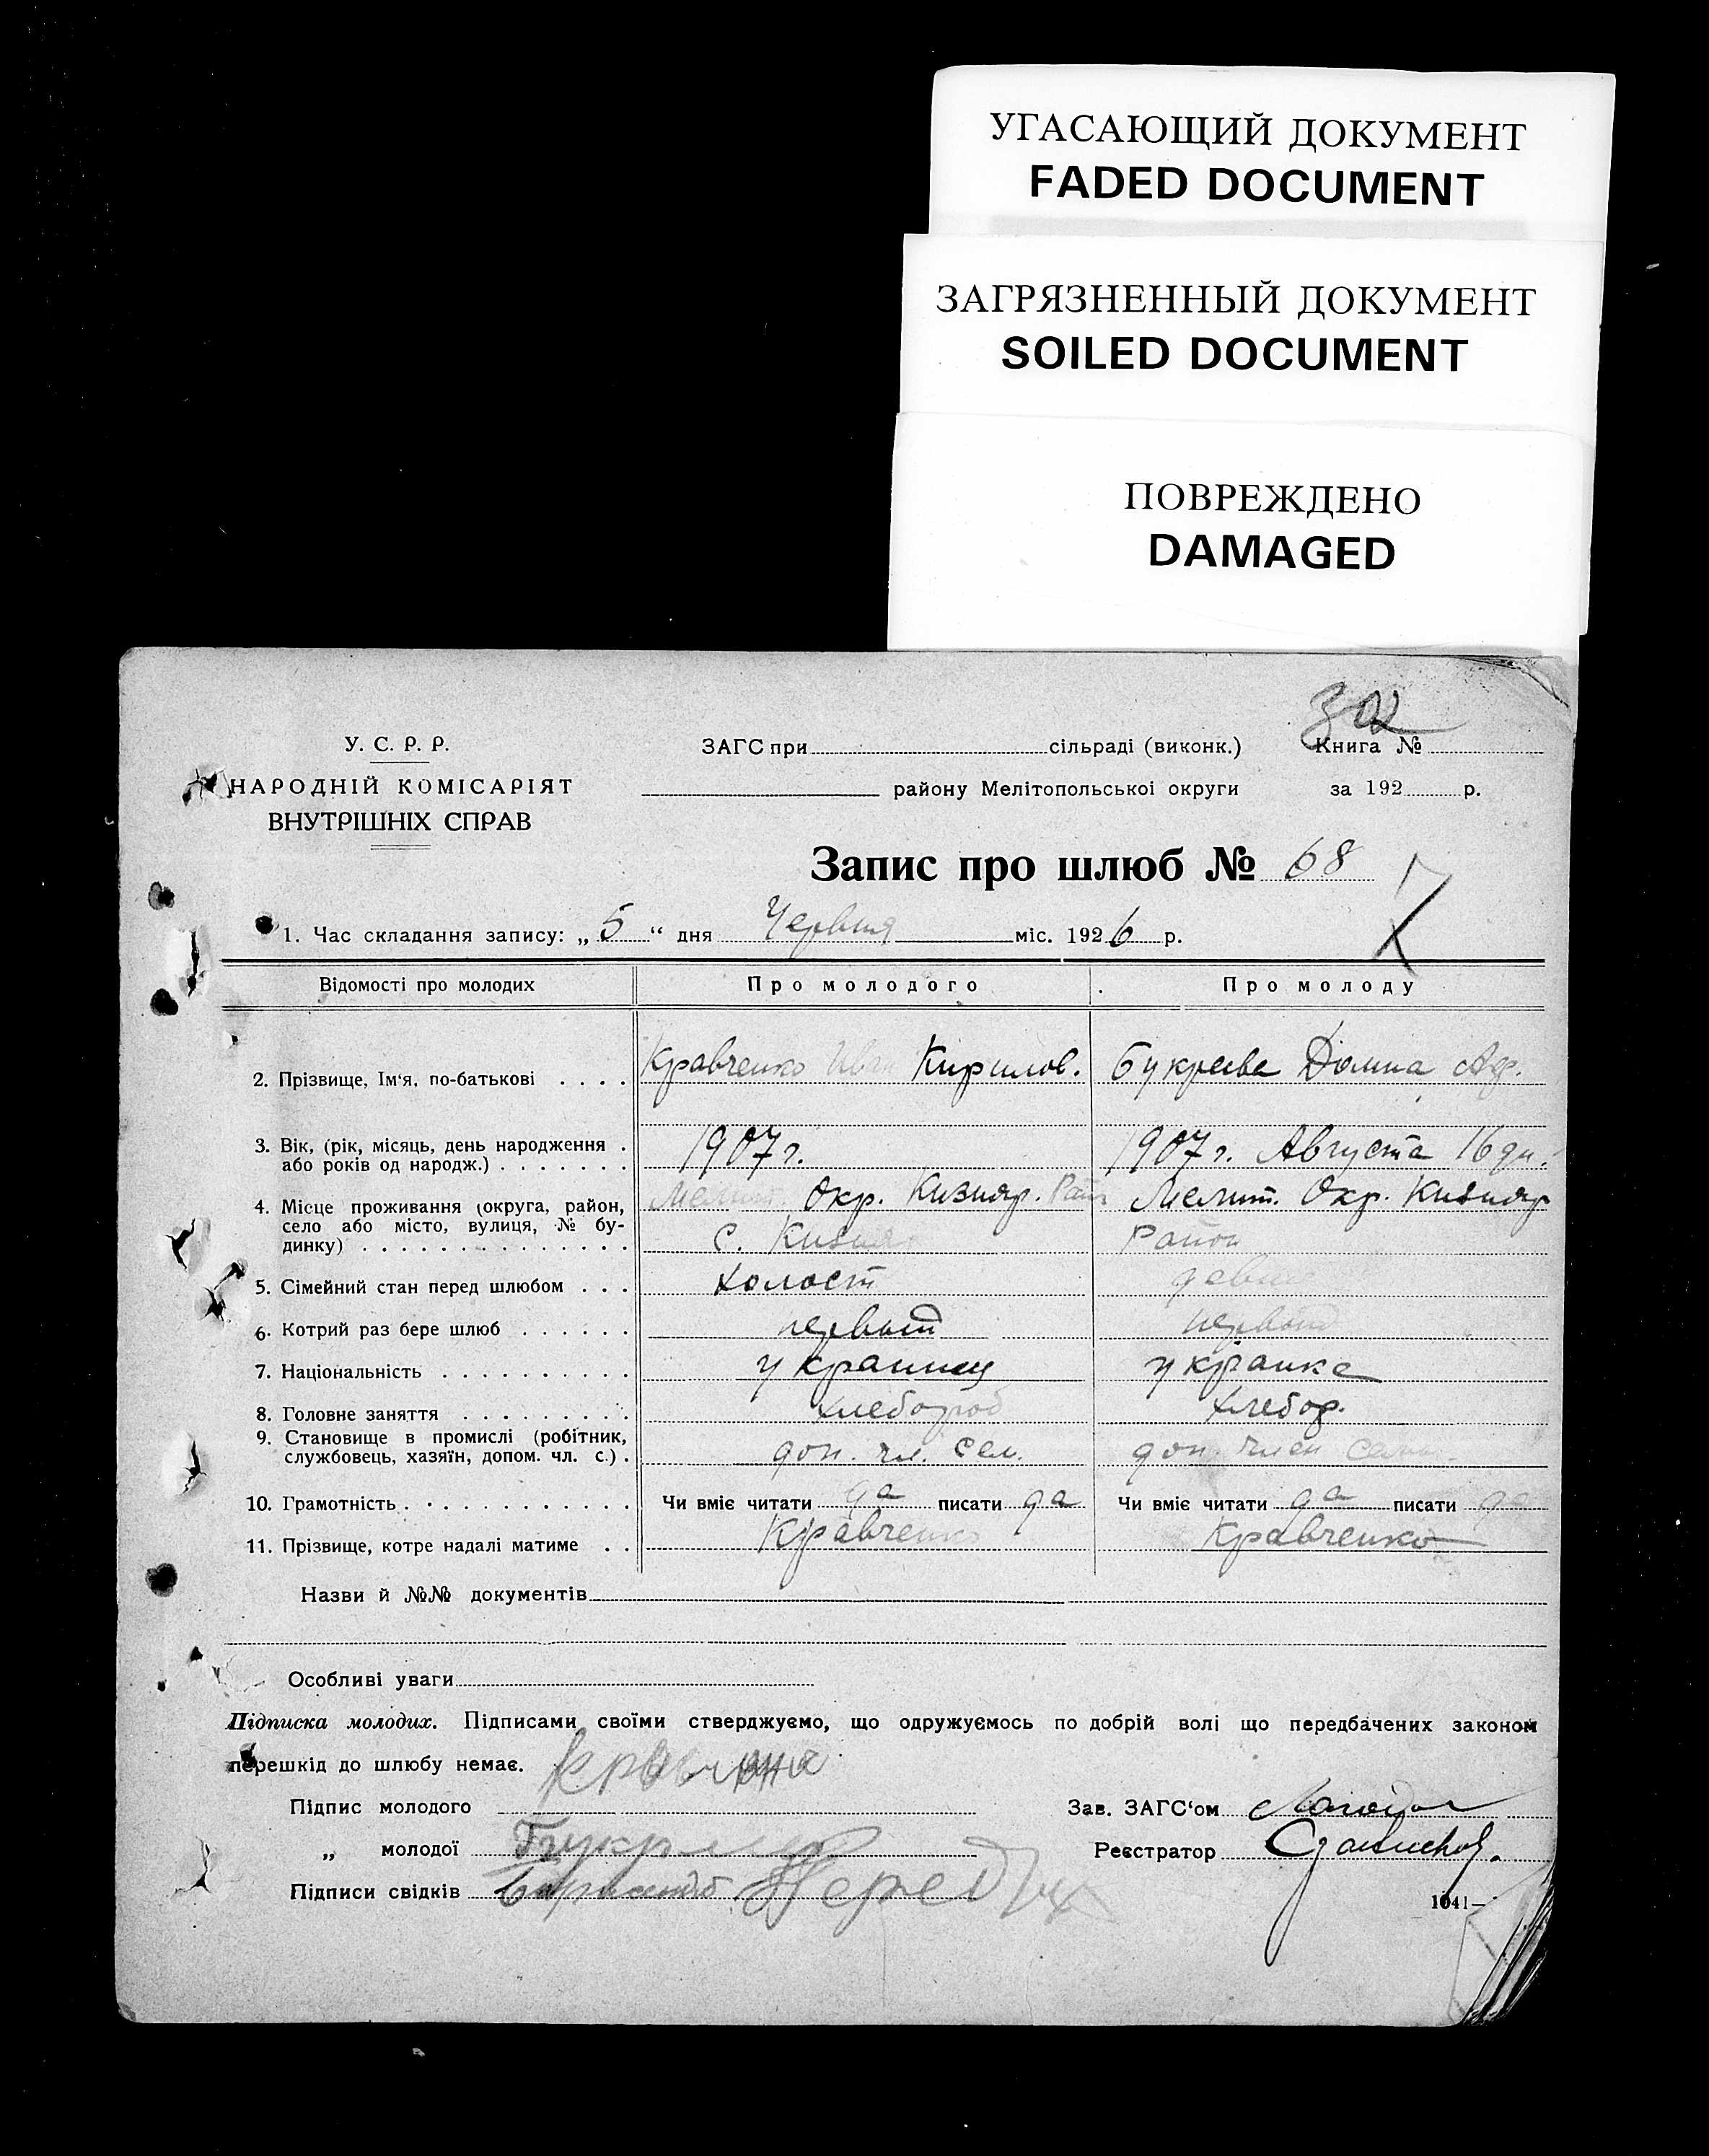 УГАСАЮЩИЙ ДОКУМЕНТ
FADED DOCUMENT
ЗАГРЯЗНЕННЫЙ ДОКУМЕНТ
SOILED DOCUMENT
ПОВРЕЖДЕНО
DAMAGED
302
У. С. Р. Р.
НАРОДНІЙ КОМІСАРІЯТ
ВНУТРІШНІХ СПРАВ
ЗАГС при сільраді (виконк.) Книга №
району Мелітопольської округи за 192 р.
Запис про шлюб № 68
1. Час складання запису: „5“ дня Червня міс. 1926 р.
Відомості про молодих Про молодого Про молоду
2. Прізвище, Ім‘я, по-батькові Кравченко Иван Кирилов. Букреева Домна Адр.
3. Вік, (рік, місяць, день народження або років од народж.) 1907 г. 1907 г. Августа 16 дн.
4. Місце проживання (округа, район, Мелит. Окр. Кизияр. Райо Мелит. Окр. Кизияр
село або місто, вулиця, № бу-
динку) с. Кизияр Район
5. Сімейний стан перед шлюбом холост девиц
6. Котрий раз бере шлюб первый первый
7. Національність украинец украинка
8. Головне заняття хлебороб хлебор.
9. Становище в промислі (робітник,
службовець, хазяїн, допом. чл. с.) доп. чл. сем. доп. член сем.
10. Грамотність Чи вміє читати да писати да Чи вміє читати да писати да
11. Прізвище, котре надалі матиме Кравченко Кравченко
Назви й №№ документів
Особливі уваги
Підписка молодих. Підписами своїми стверджуємо, що одружуємось по добрій волі що передбачених законом
перешкід до шлюбу немає.
Підпис молодого Зав. ЗАГС‘ом
„ молодої Реєстратор
Підписи свідків
1041—